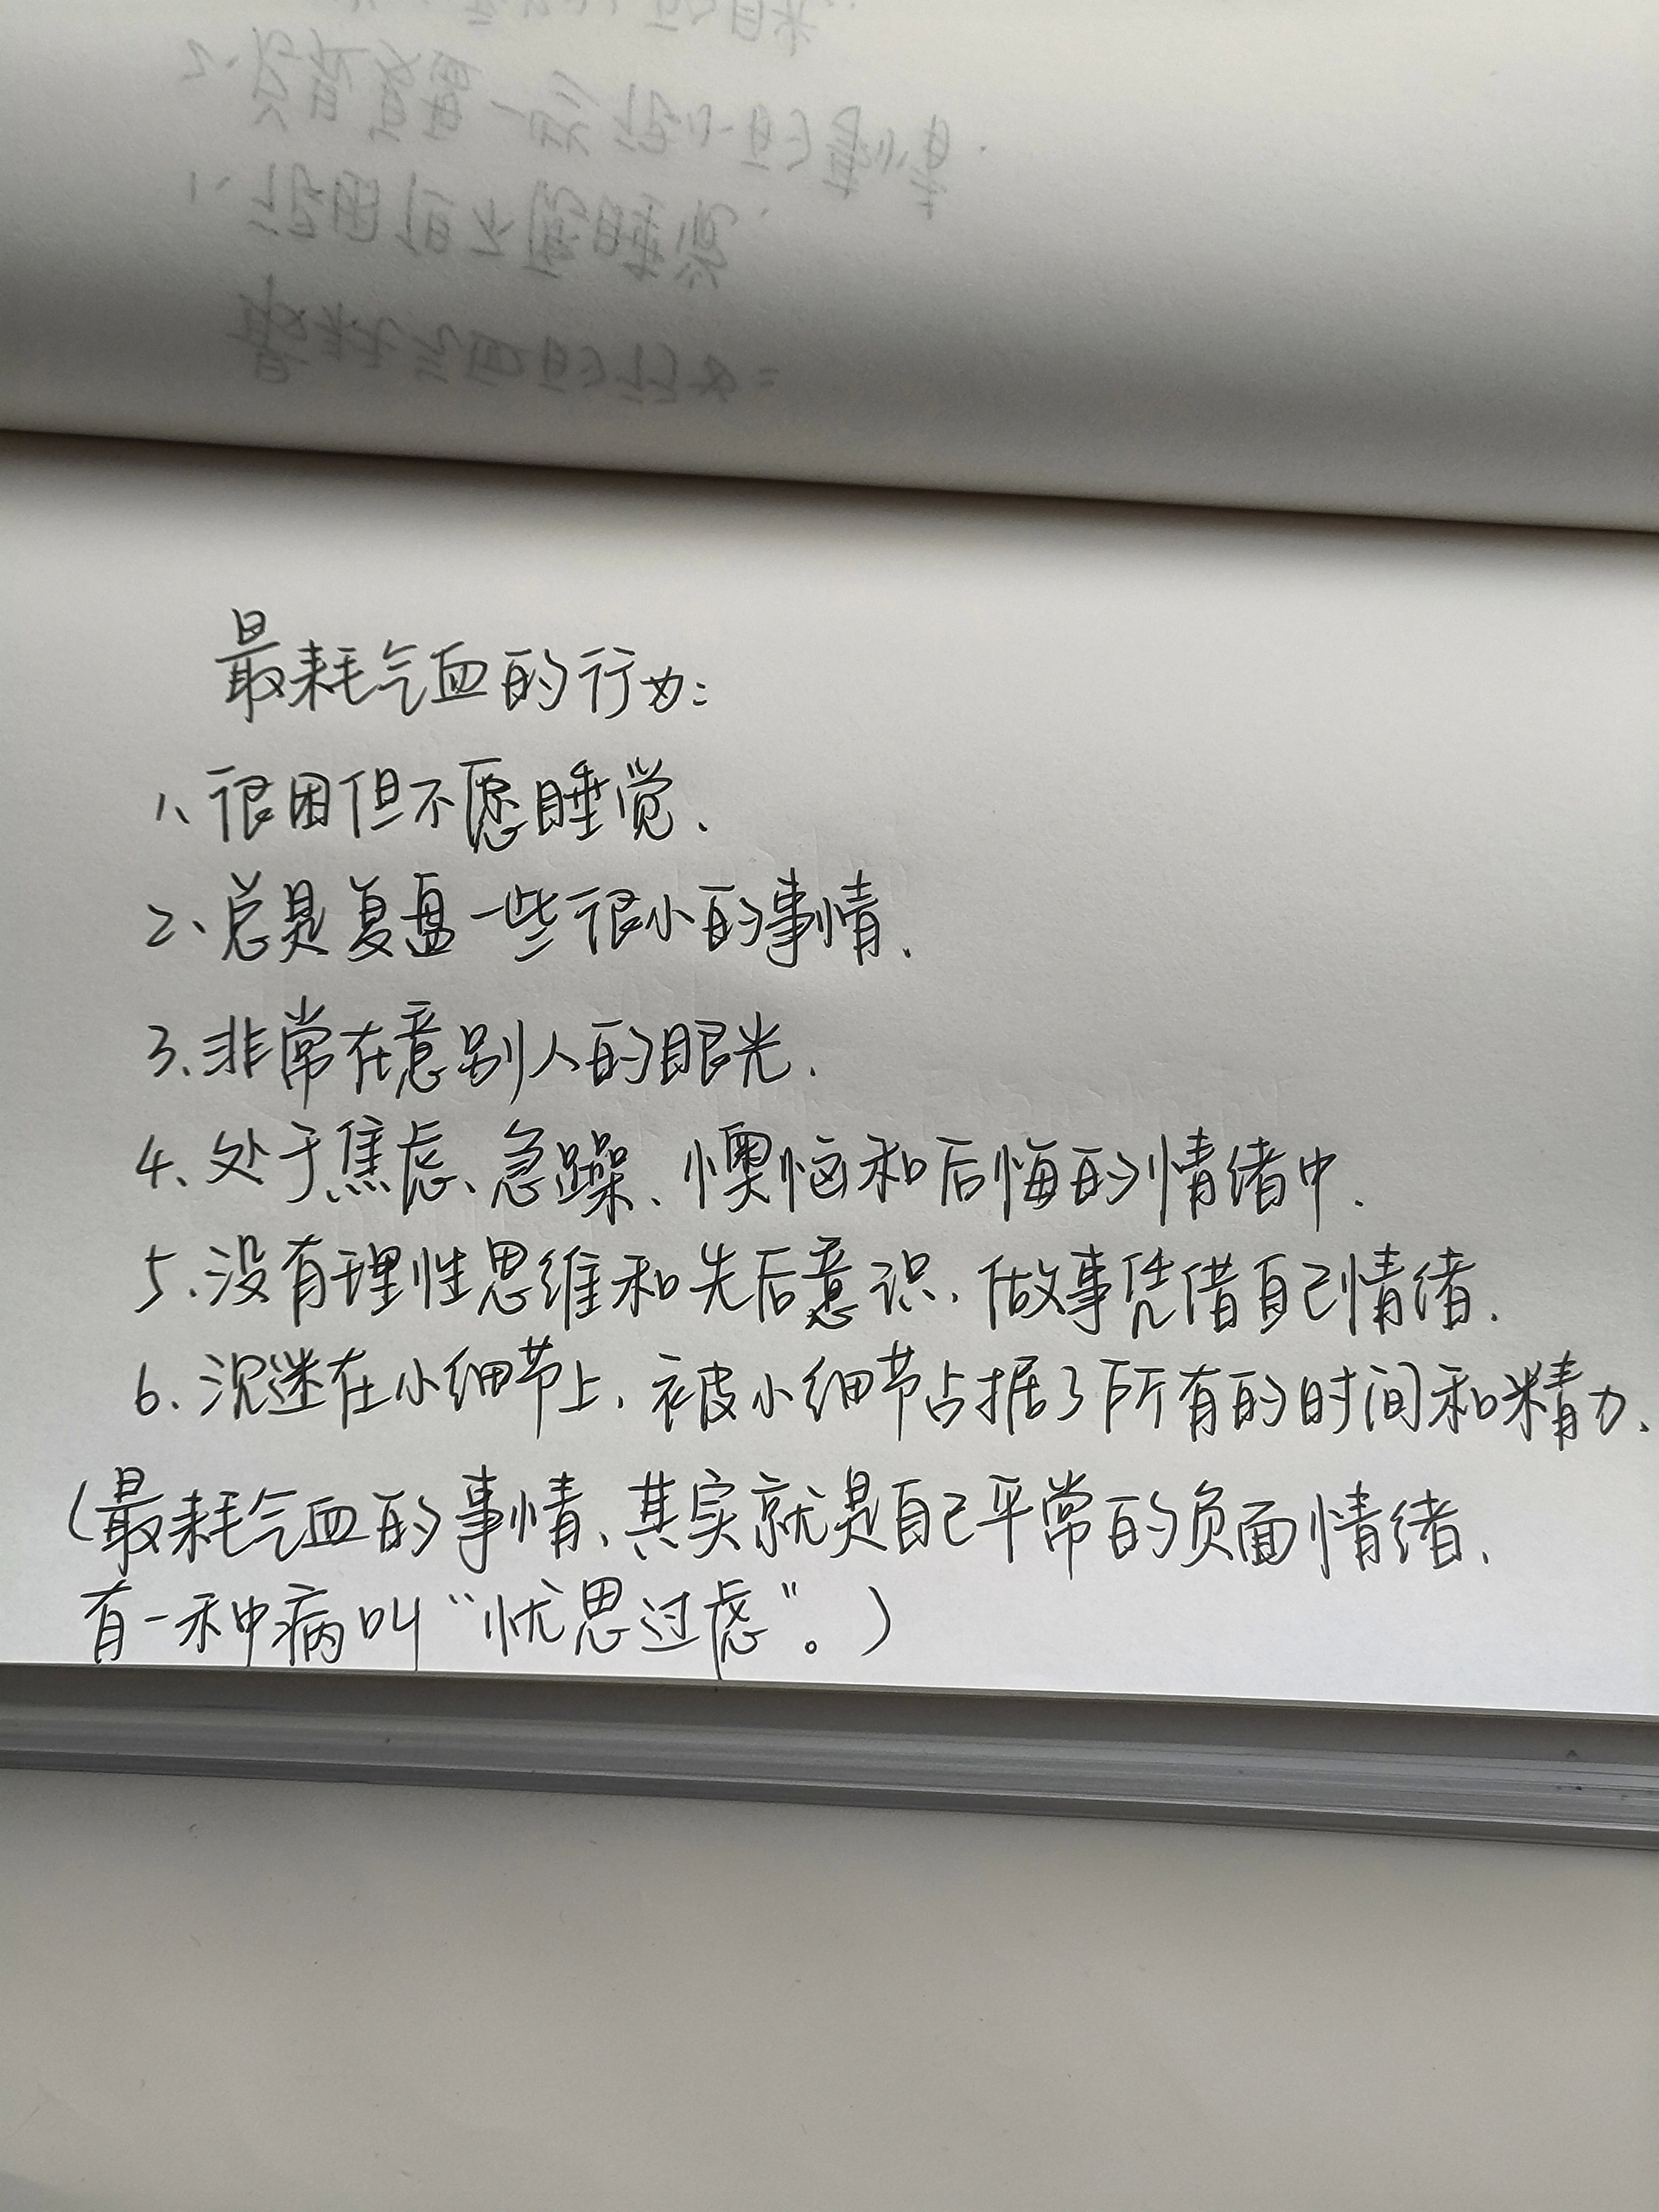 最耗气血的行为:
1、很困但不愿睡觉.
2、总是复盘一些很小的事情.
3.非常在意别人的眼光.
4、处于焦虑、急躁、懊恼和后悔的情绪中.
5.没有理性思维和先后意识.做事凭借自己情绪.
6.沉迷在小细节上.被小细节占据了所有的时间和精力.
(最耗气血的事情、其实就是自己平常的负面情绪.
有一种病叫“忧思过虑”。)